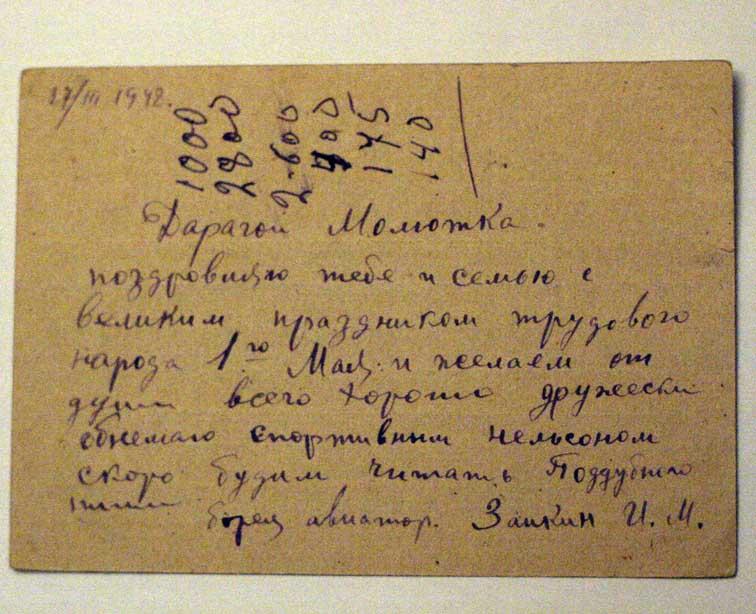 27/III 1948.
1000
2800
2-600
400
175
140
Дарагой Молютка.
поздровляю тебе и семью с
великим праздником трудового
народа 1го Мая. и желаем от
души всего хорошо дружески
обнемаю спортивным нельсоном
скоро будим читать Поддубного
борец авиатор. Заикин И. М.